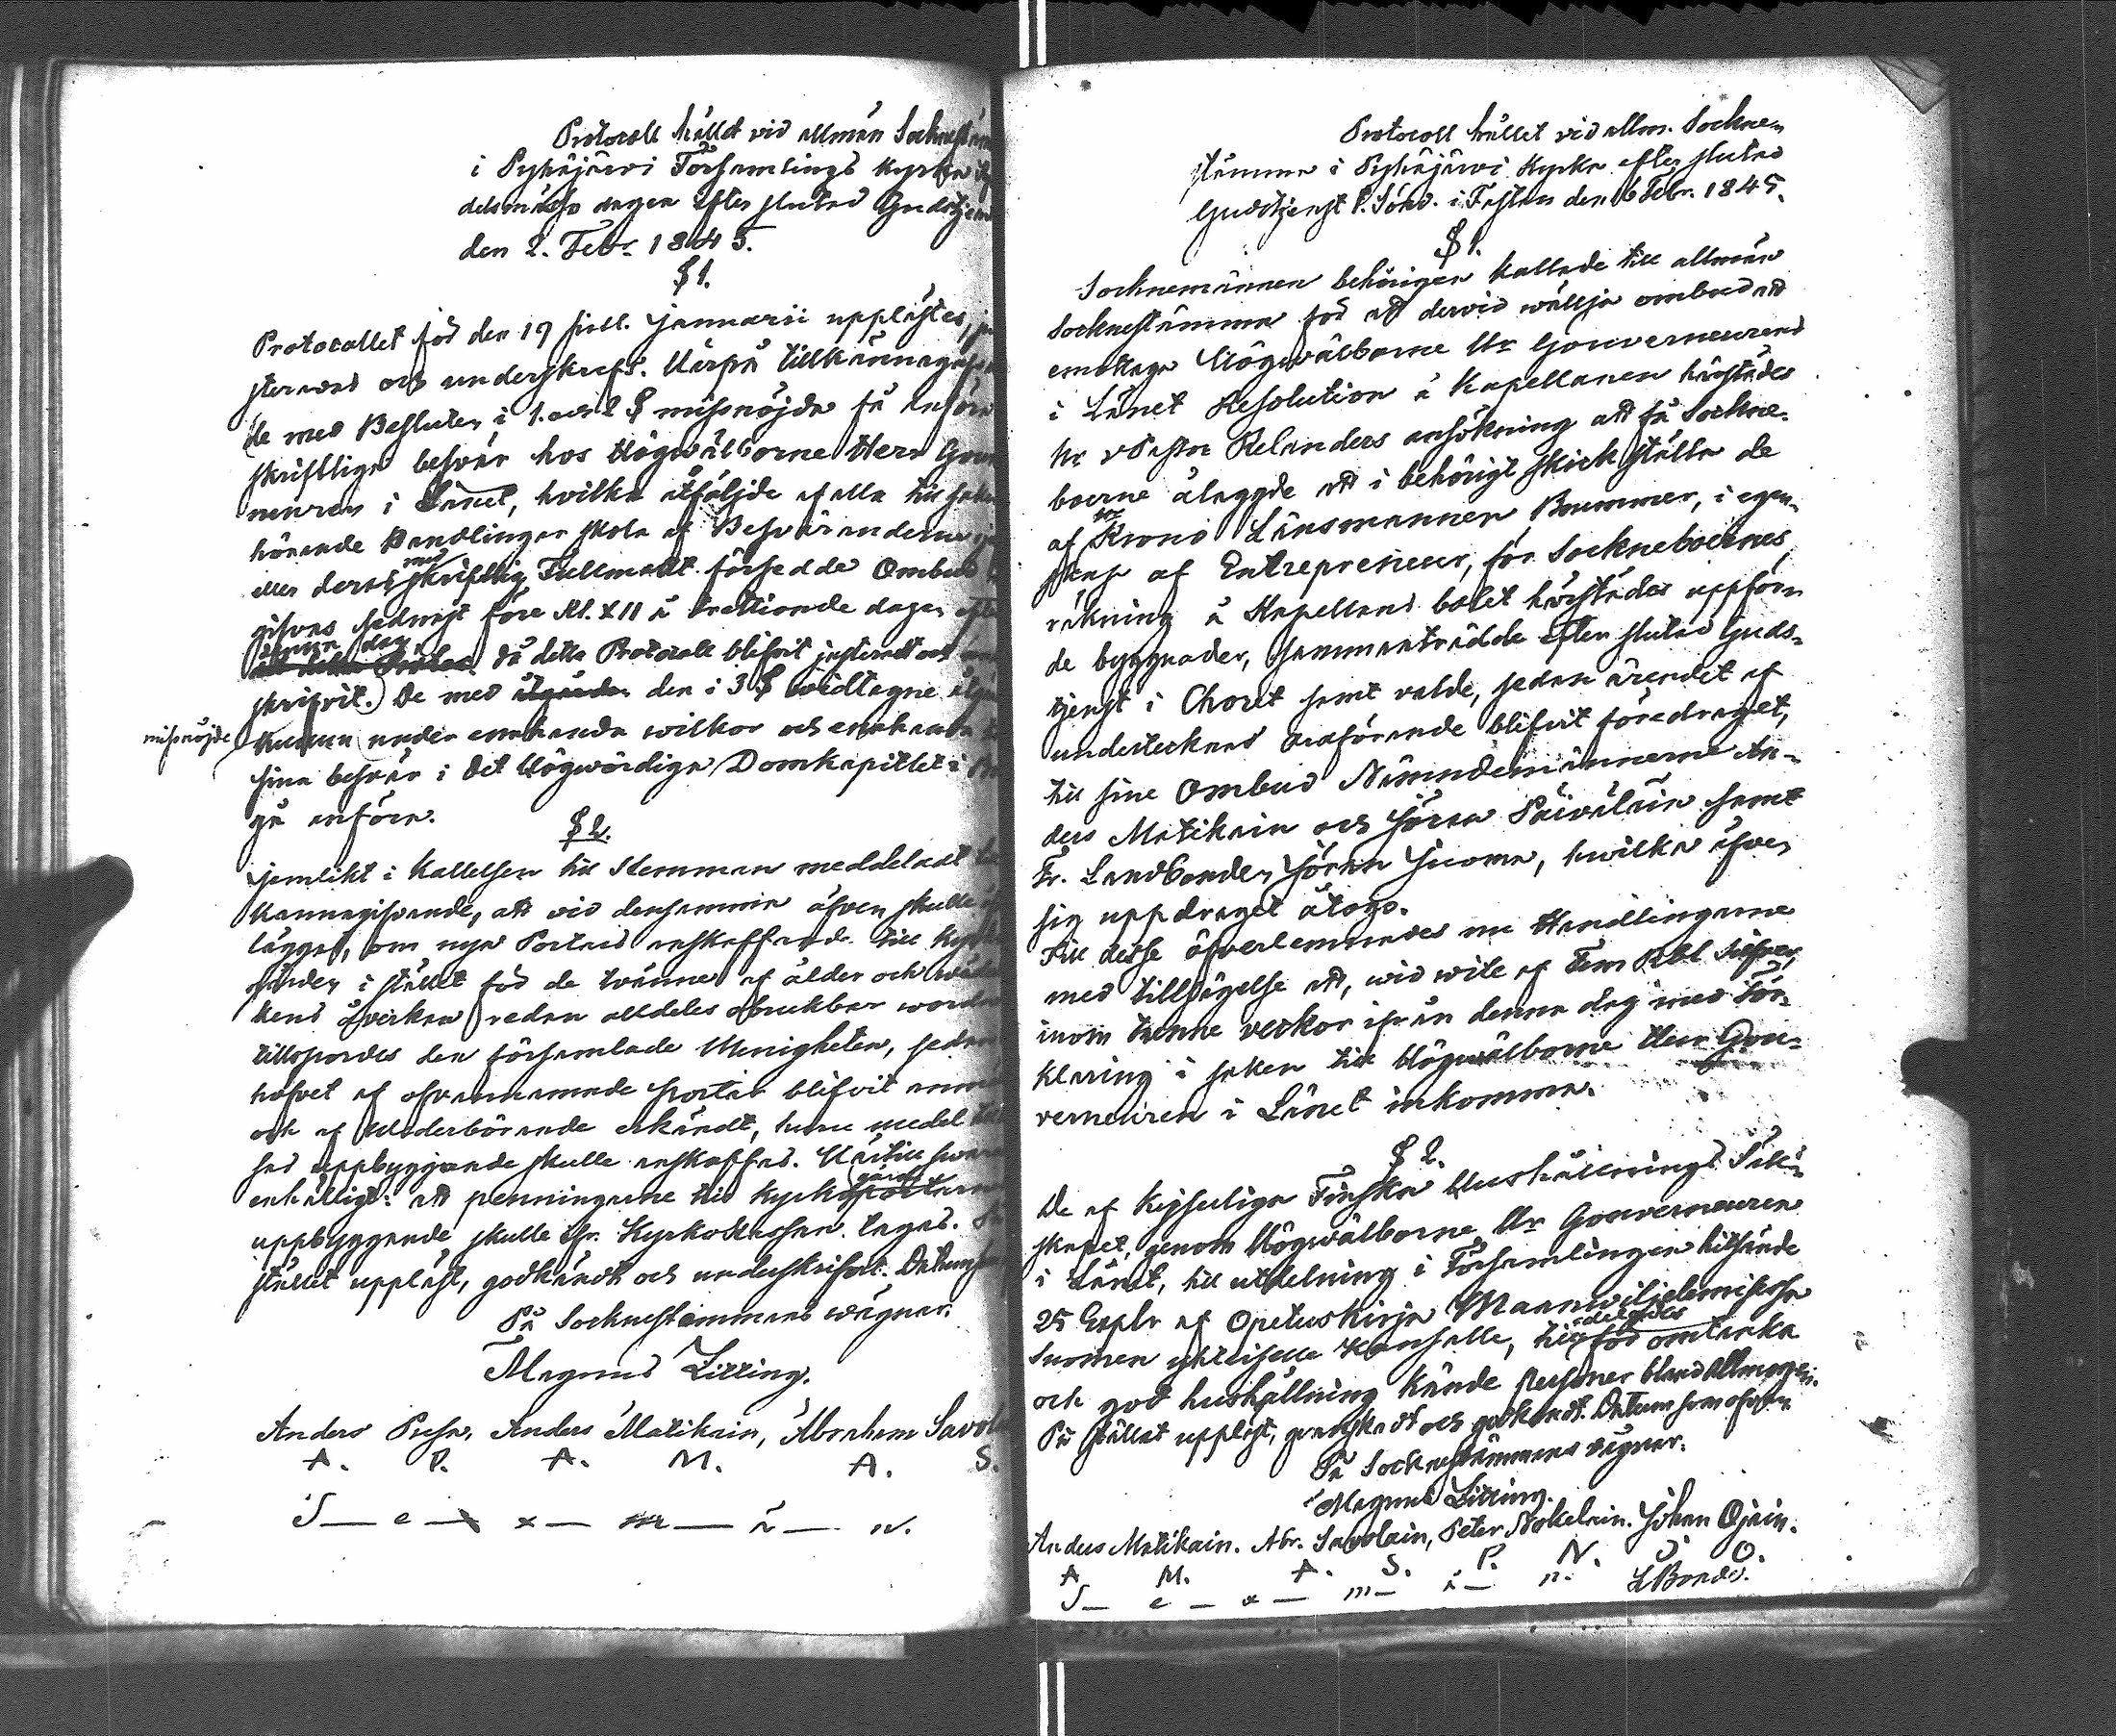 Protocoll hålldt vid allmän Socknestäm
i Pyhäjärwi Församlings Kyrka
delsmässo dagen efter slutad Gudstjen
den 2. Febr. 1845.
§ 1.
Protocollet för den 19 sistl. Januarii upplästes, ju
sterades och underskrefs. Härpå tillkännagafs
de med Besluten i 1. och 2 § missnöjda få anföra
skriftliga besvär hos Högwälborne Herr Gouv
neuren i Länet, hvilka åtföljde af alla till saken
hörande Handlingar skola af Besvärandena
eller deras med skriftlig Fullmakt försedde Ombud
gifvas sednast före Kl. XII å trettionde dagen efter
denna dag då detta Protocoll blifvit justeradt och
skrifvit. De med den i 3 § widtagne
missnöjde kunna under enahanda wilkor och enahanda
sina besvär i Det Högwördiga Domkapitlet i
gå anföra.
§ 2.
Jemlikt i Kallelsen till Stemman meddeladt
kännagifvande, att vid densamma äfven skulle
läggas, om nya Portars anskaffande till Kyrko
gården i stället för de tvänne af ålder och
kens åverkan redan alldeles obrukbar word
tillspordes den församlade Menigheten, sedan
hofvet af ofvannämnde portar blifvit
och af Wederbörande erkändt, hvar medel till
ras uppbyggande skulle anskaffas. Härtill svara
enhälligt: att penningarne till Kyrkogårds portarnas
uppbyggande skulle ifr. Kyrkokassan tagas. På
stället uppläst, godkändt och underskrifvet. Datum som
På Socknestämmans wägnar.
Magnus Litzing.
Anders Anders Matikain, Abraham Savola
A. P. A. M. A. S.
S — e — x — m — ä — n.
Protocoll hållet vid allm. Sockne-
stämma i Pyhäjärwi Kyrka efter slutad
Gudstjenst 1. Sönd. i Fastan den Febr. 1845.
§ 1.
Socknemännen behörigen kallade till allmän
Socknestämma för att dervid wällja ombud att
emottaga Högwälborne Hr Gouverneurens
i Länet Resolution å Kapellanen härstädes
Hr vPastor Relanders ansökning att få Sockne-
boerne ålaggde att i behörigt skick ställa de
af Krono Länsmannen Brummer, i egen-
skap af Entrepreneur, för Sockneboernes
räkning å Kapellans bolet härstädes uppför-
de byggnader, sammanträdde efter slutad Guds-
tjenst i Choret samt valde, sedan ärendet af
undertecknad Ordförande blifvit föredraget,
till sine Ombud Nämndemännerne An-
ders Matikain och Jöran Päiväläin samt
Fr. Landbonden Jöran Juoma, hwilka äfven
sig uppdraget åtogo.
Till desse öfverlemnades nu Handlingarne
med tillsägelse att, wid wite af Fem Rbl Silfver,
inom trenne veckor ifrån denna dag med För-
klaring i saken till Högwälborne Herr Gou-
verneuren i Länet inkomma.
§ 2.
De af Kejserliga Finska Hushållnings Säll-
skapet, genom Högwälborne Hr Gouverneuren
i Länet, till utdelning i Församlingen hitsände
25 Explr af Opetuskirja Maanwiljelemisessä
Suomen yhteiselle Kansalle, utdelades för omtanka
och god hushållning kände personer bland Allmogen.
På stället uppläst, granskadt och godkändt. Datum som ofvan
På Socknestämmans vägnar.
Magnus Litzing.
Anders Matikain. Abr. Savolain, Peter Nokelain. Johan Ojain.
A M. A. S. P. N. J O.
S — e — x — m — ä — n. LBönder.